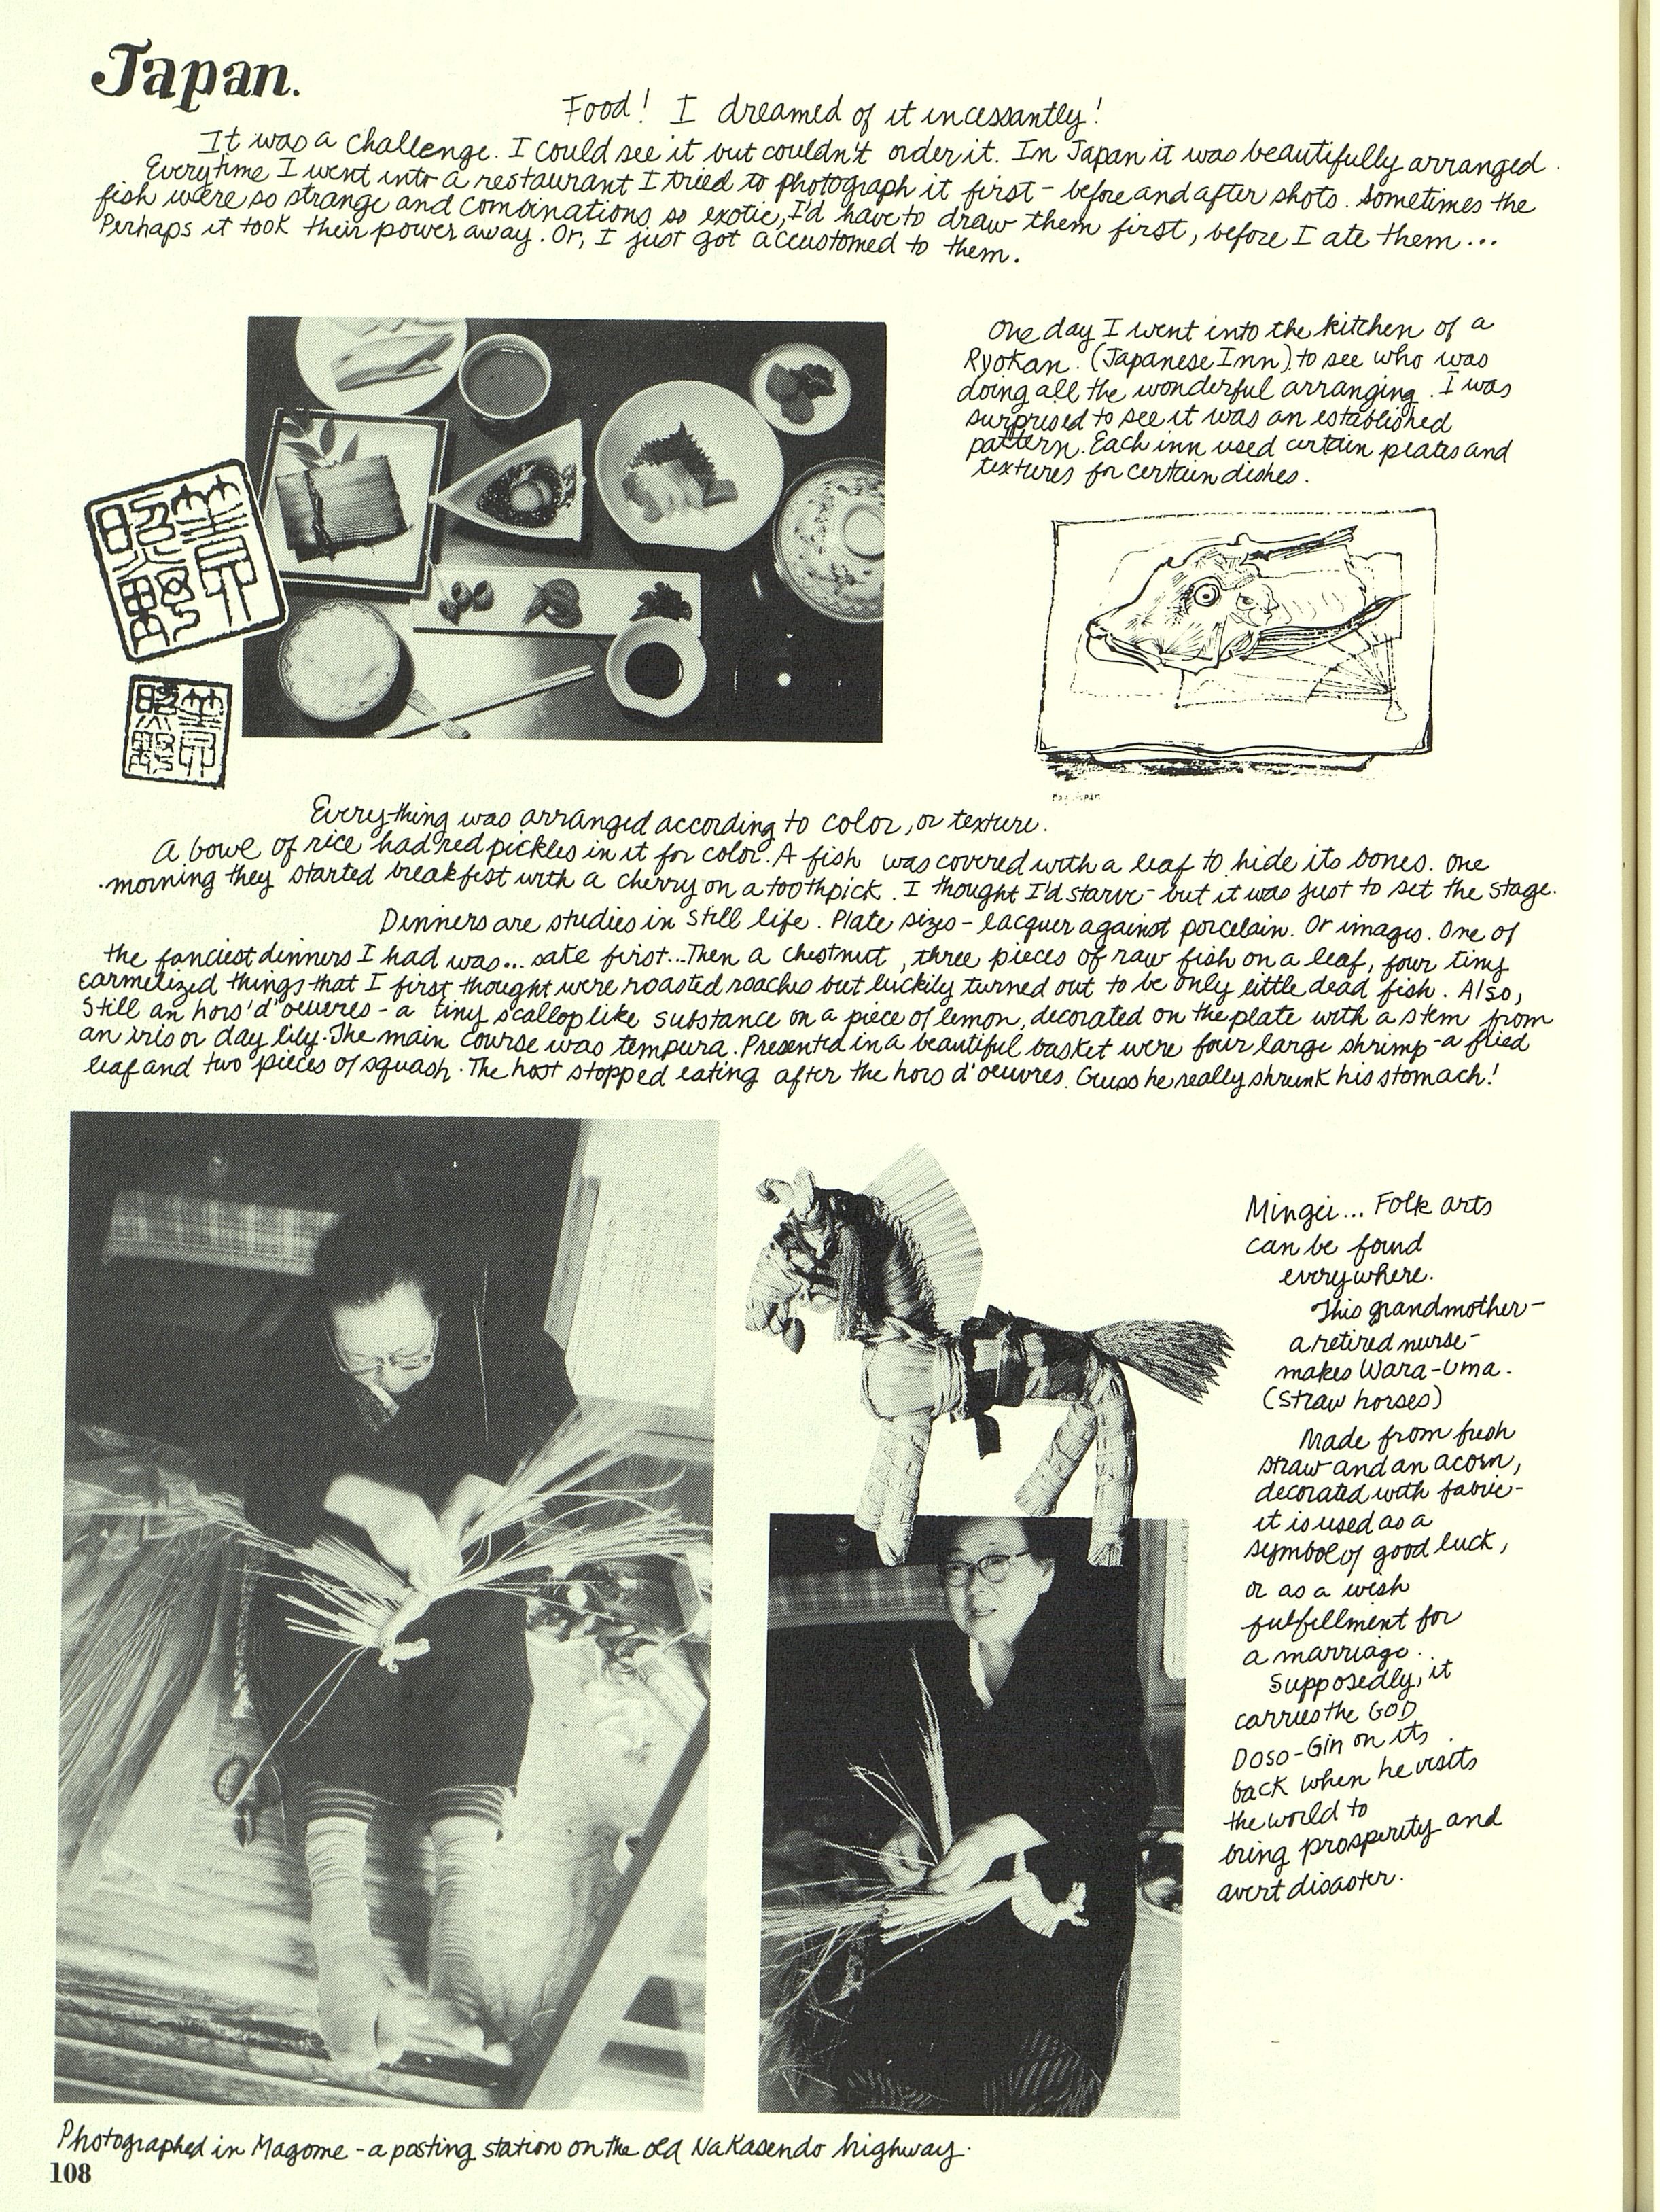 Japan.
Food! I dreamed of it incessantly!
It was a challenge. I could see it but couldn't order it. In Japan it was beautifully arranged.
Everytime I went into a restaurant I tried to photograph it first - before and after shots. Sometimes the
fish were so strange and combinations so exotic, I'd have to draw them first, before I ate them...
Perhaps it took their power away. Or, I just got accustomed to them.
One day I went into the kitchen of a
Ryokan. (Japanese Inn) to see who was
doing all the wonderful arranging. I was
surprised to see it was an established
pattern. Each inn used certain plates and
textures for certain dishes.
Everything was arranged according to color, or texture.
A bowl of rice had red pickles in it for color. A fish was covered with a leaf to hide its bones. One
morning they started breakfest with a cherry on a toothpick. I thought I'd starve - but it was just to set the stage.
Dinners are studies in still life. Plate sizes - lacquer against porcelain. Or images. One of
the fanciest dinners I had was... sake first... Then a chestnut, three pieces of raw fish on a leaf, four tiny
carmelized things that I first thought were roasted roaches but luckily turned out to be only little dead fish. Also,
still an hors'd'oeuvres - a tiny scallop like substance on a piece of lemon, decorated on the plate with a stem from
an iris or day lily. The main course was tempura. Presented in a beautiful basket were four large shrimp - a fried
leaf and two pieces of squash. The host stopped eating after the hors d'oeuvres. Guess he really shrunk his stomach!
Mingei... Folk arts
can be found
everywhere.
This grandmother -
a retired nurse -
makes Wara-Uma.
(straw horses)
Made from fresh
straw and an acorn,
decorated with fabric -
it is used as a
symbol of good luck,
or as a wish
fulfillment for
a marriage.
Supposedly, it
carries the GOD
Doso-Gin on its
back when he visits
the world to
bring prosperity and
avert disaster.
Photographed in Magome - a posting station on the old Nakasendo highway.
108